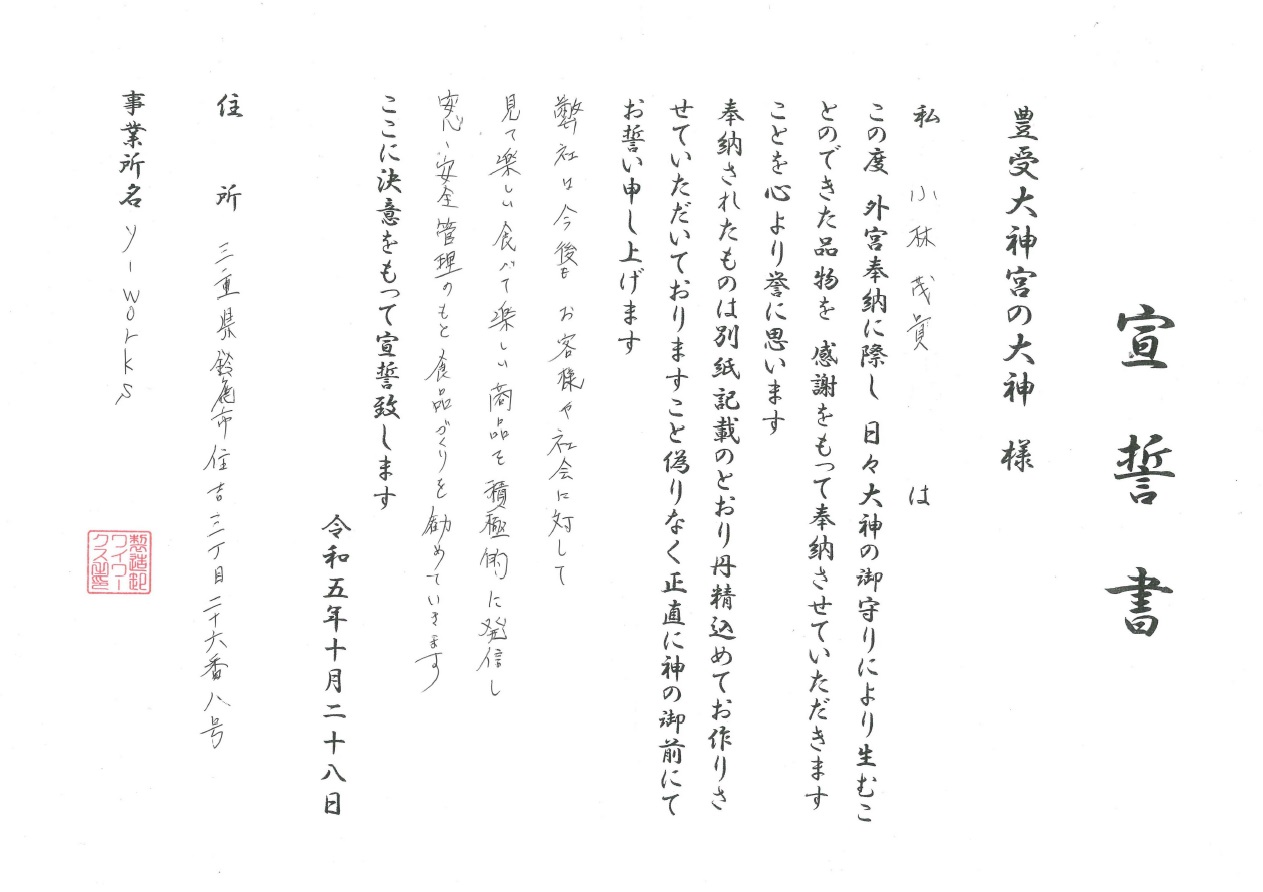 宣誓書
豊受大神宮の大神 様
私 小林茂 は
この度 外宮奉納に際し 日々大神の御守りにより生むこ
とのできた品物を 感謝をもって奉納させていただきます
ことを心より誉に思います
奉納されたものは別紙記載のとおり丹精込めてお作りさ
せていただいておりますこと偽りなく正直に神の御前にて
お誓い申し上げます
弊社は今後も お客様や社会に対して
見て楽しい食べて楽しい商品を積極的に発信し
安心、安全管理のもと食品づくりを勧めていきます
ここに決意をもって宣誓致します
令和五年十月二十八日
住所 三重県鈴鹿市住吉三丁目二十六番八号
事業所名 y-works
製造卸
ワイワー
クス